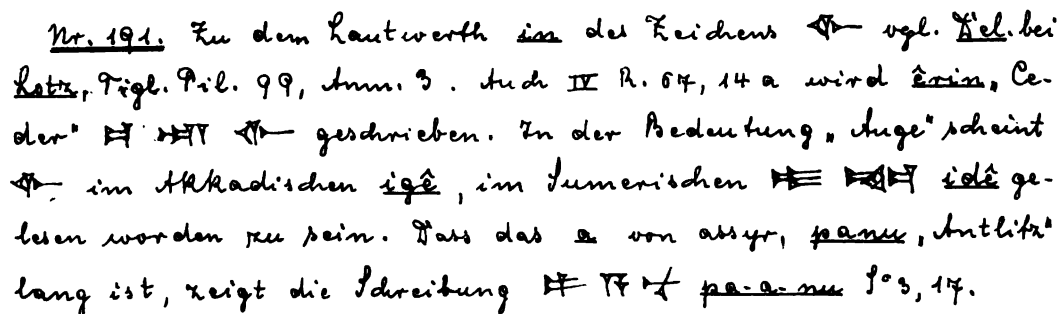 Nr. 191. Zu dem Lautwerth in des Zeichens 𒅆 vgl. Del. bei
Lotz, Tigl. Pil. 99, Anm. 3. Auch IV R. 67, 14 a wird êrin „Ce-
der“ geschrieben. In der Bedeutung „Auge“ scheint
𒅆 im Akkadischen igê, im Sumerischen idê ge-
lesen worden zu sein. Dass das a von assyr. panu „Antlitz“
lang ist, zeigt die Schreibung 𒉺 𒀀 𒉡 pa-a-nu S° 3, 17.